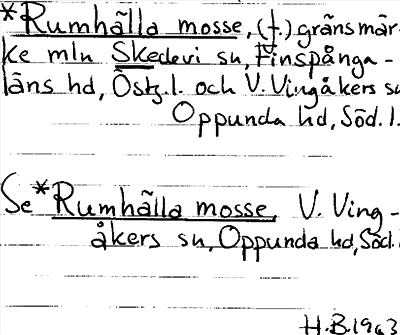 *Rumhãlla mosse, (f.) gränsmär-
ke mln Skedevi sn, Finspånga-
läns hd, Östg.l. och V. Vingåkers sn
Oppunda hd, Söd.l.
Se *Rumhãlla mosse, V. Ving-
åkers sn, Oppunda hd, Söd.l.
H.B. 1963